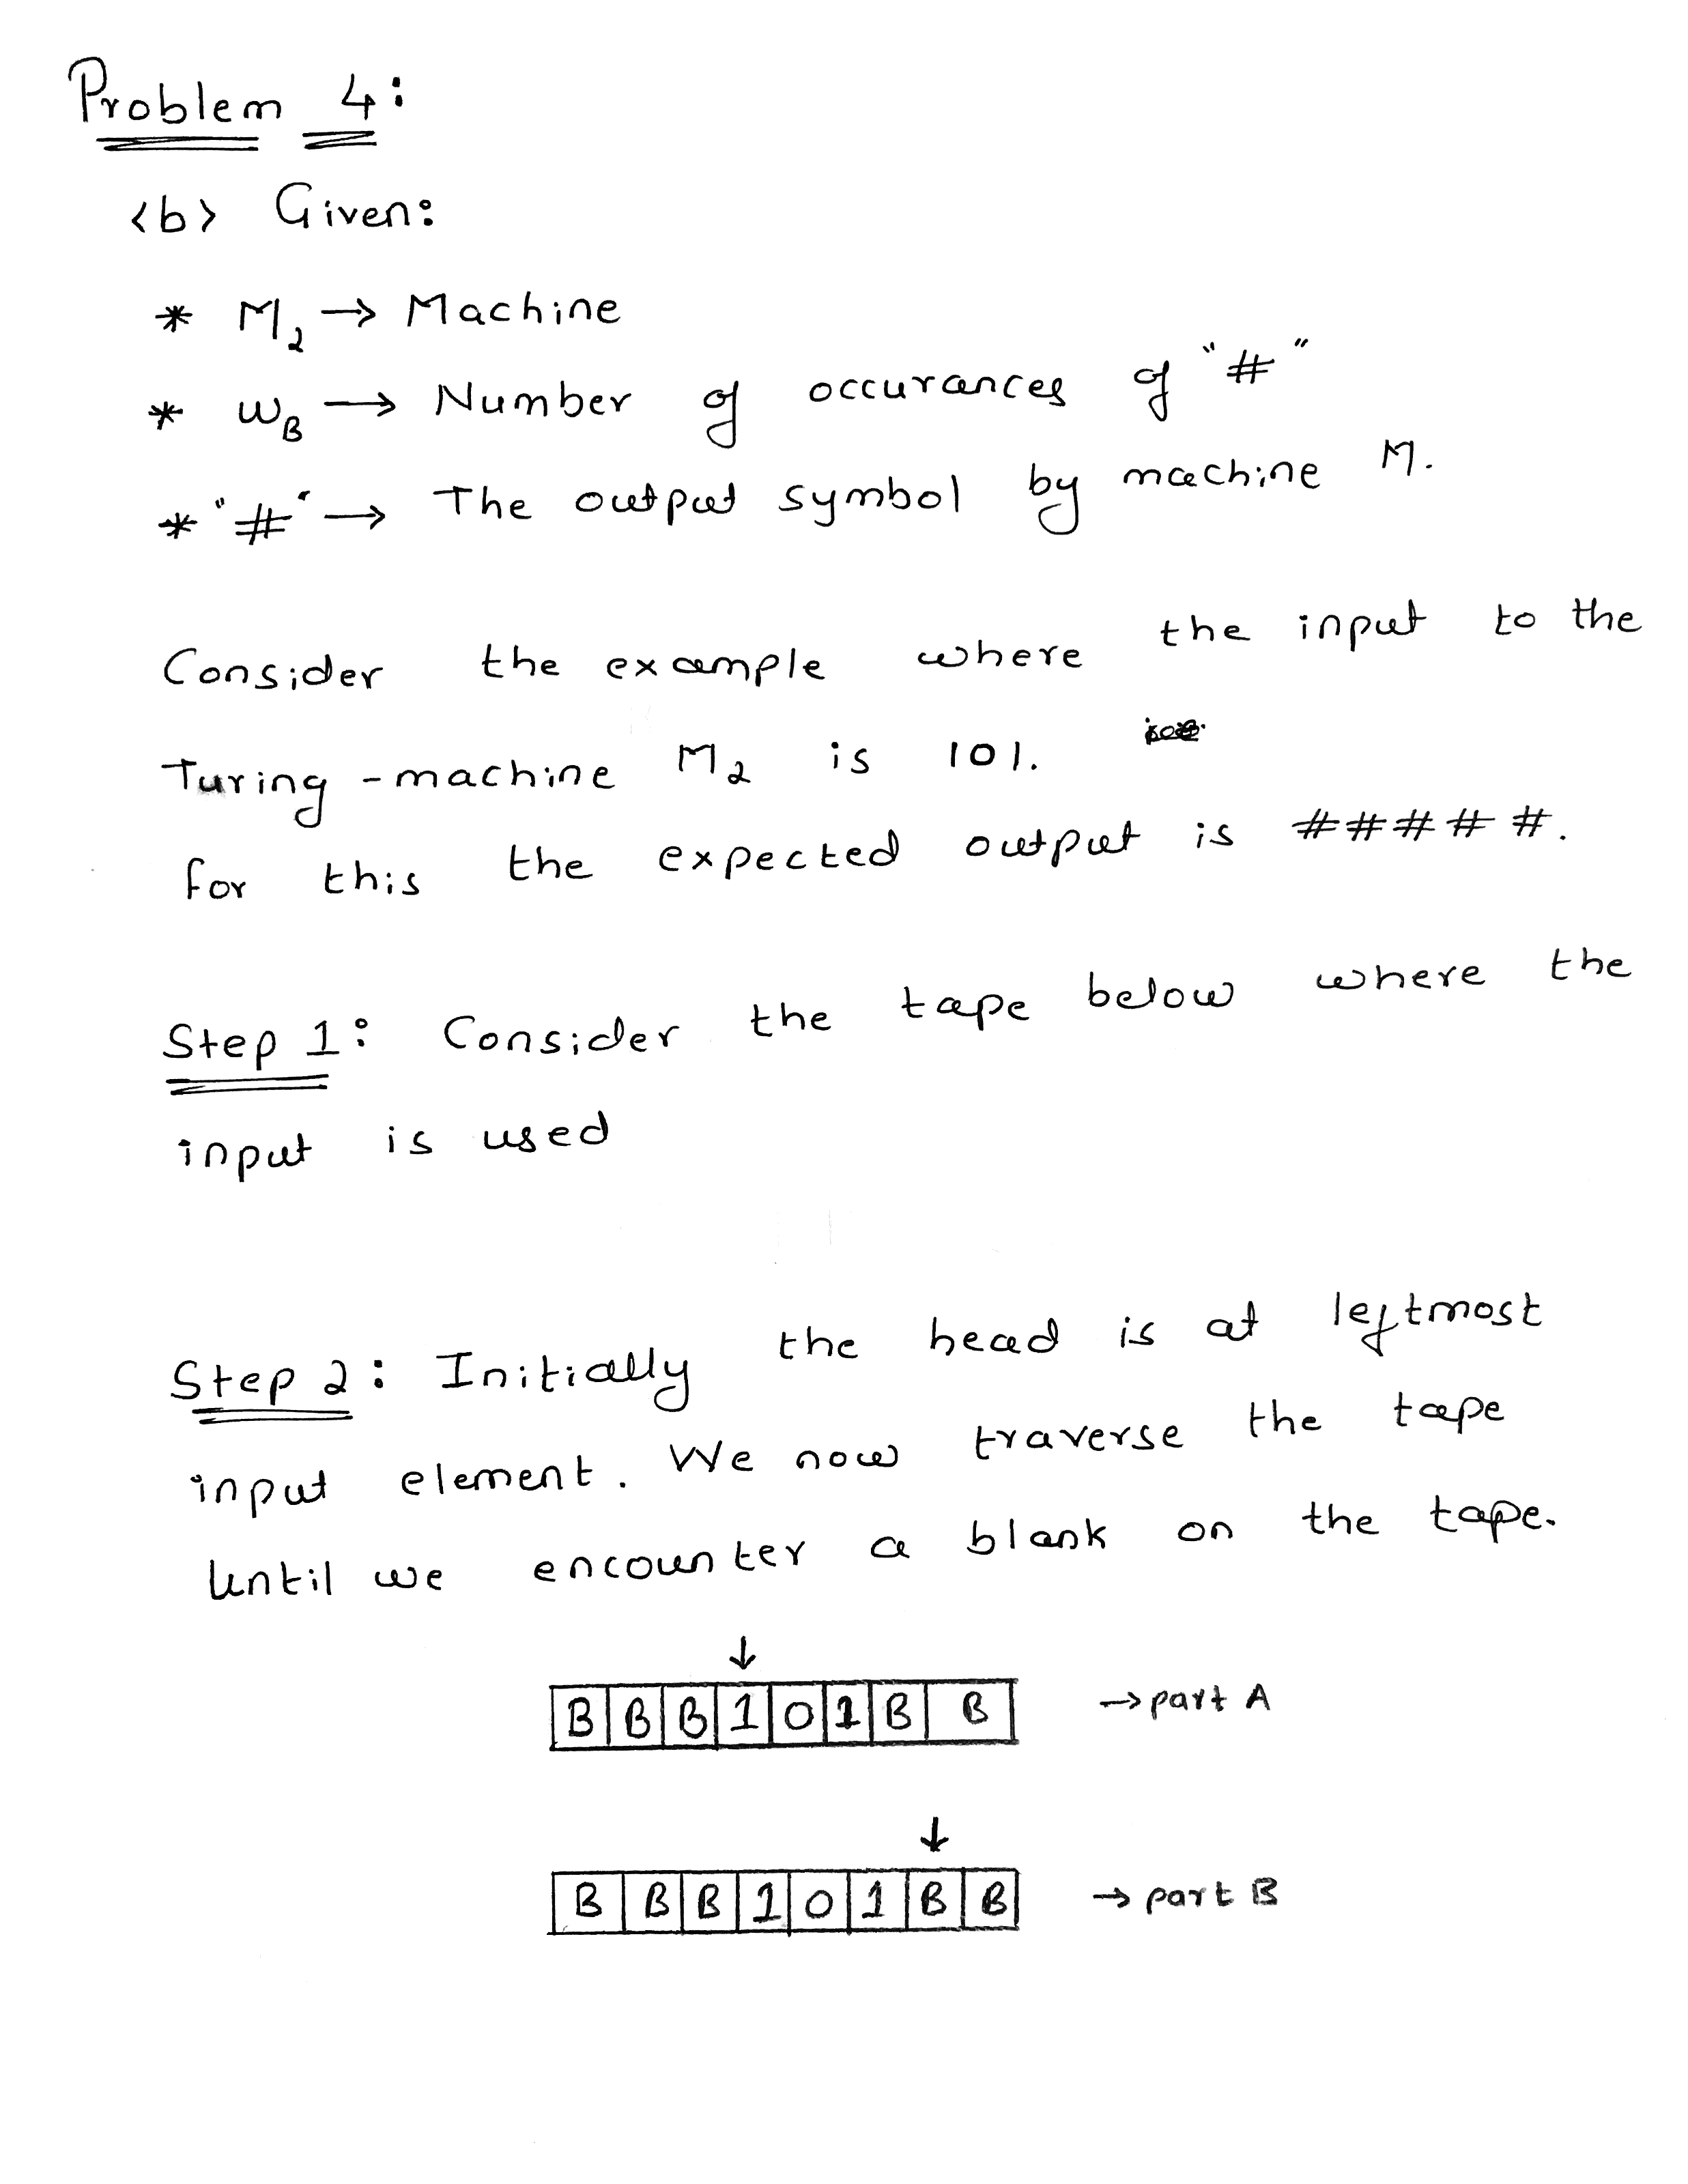 Problem 4:
<b> Given:
* M2 → Machine
* wB → Number of occurances of "#"
* "#" → The output symbol by machine M.
Consider the example where the input to the
Turing-machine M2 is 101.
for this the expected output is #####.
Step 1: Consider the tape below where the
input is used
Step 2: Initially the head is at leftmost
input element. We now traverse the tape
Until we encounter a blank on the tape.
↓
B B B 1 0 1 B B → part A
↓
B B B 1 0 1 B B → part B